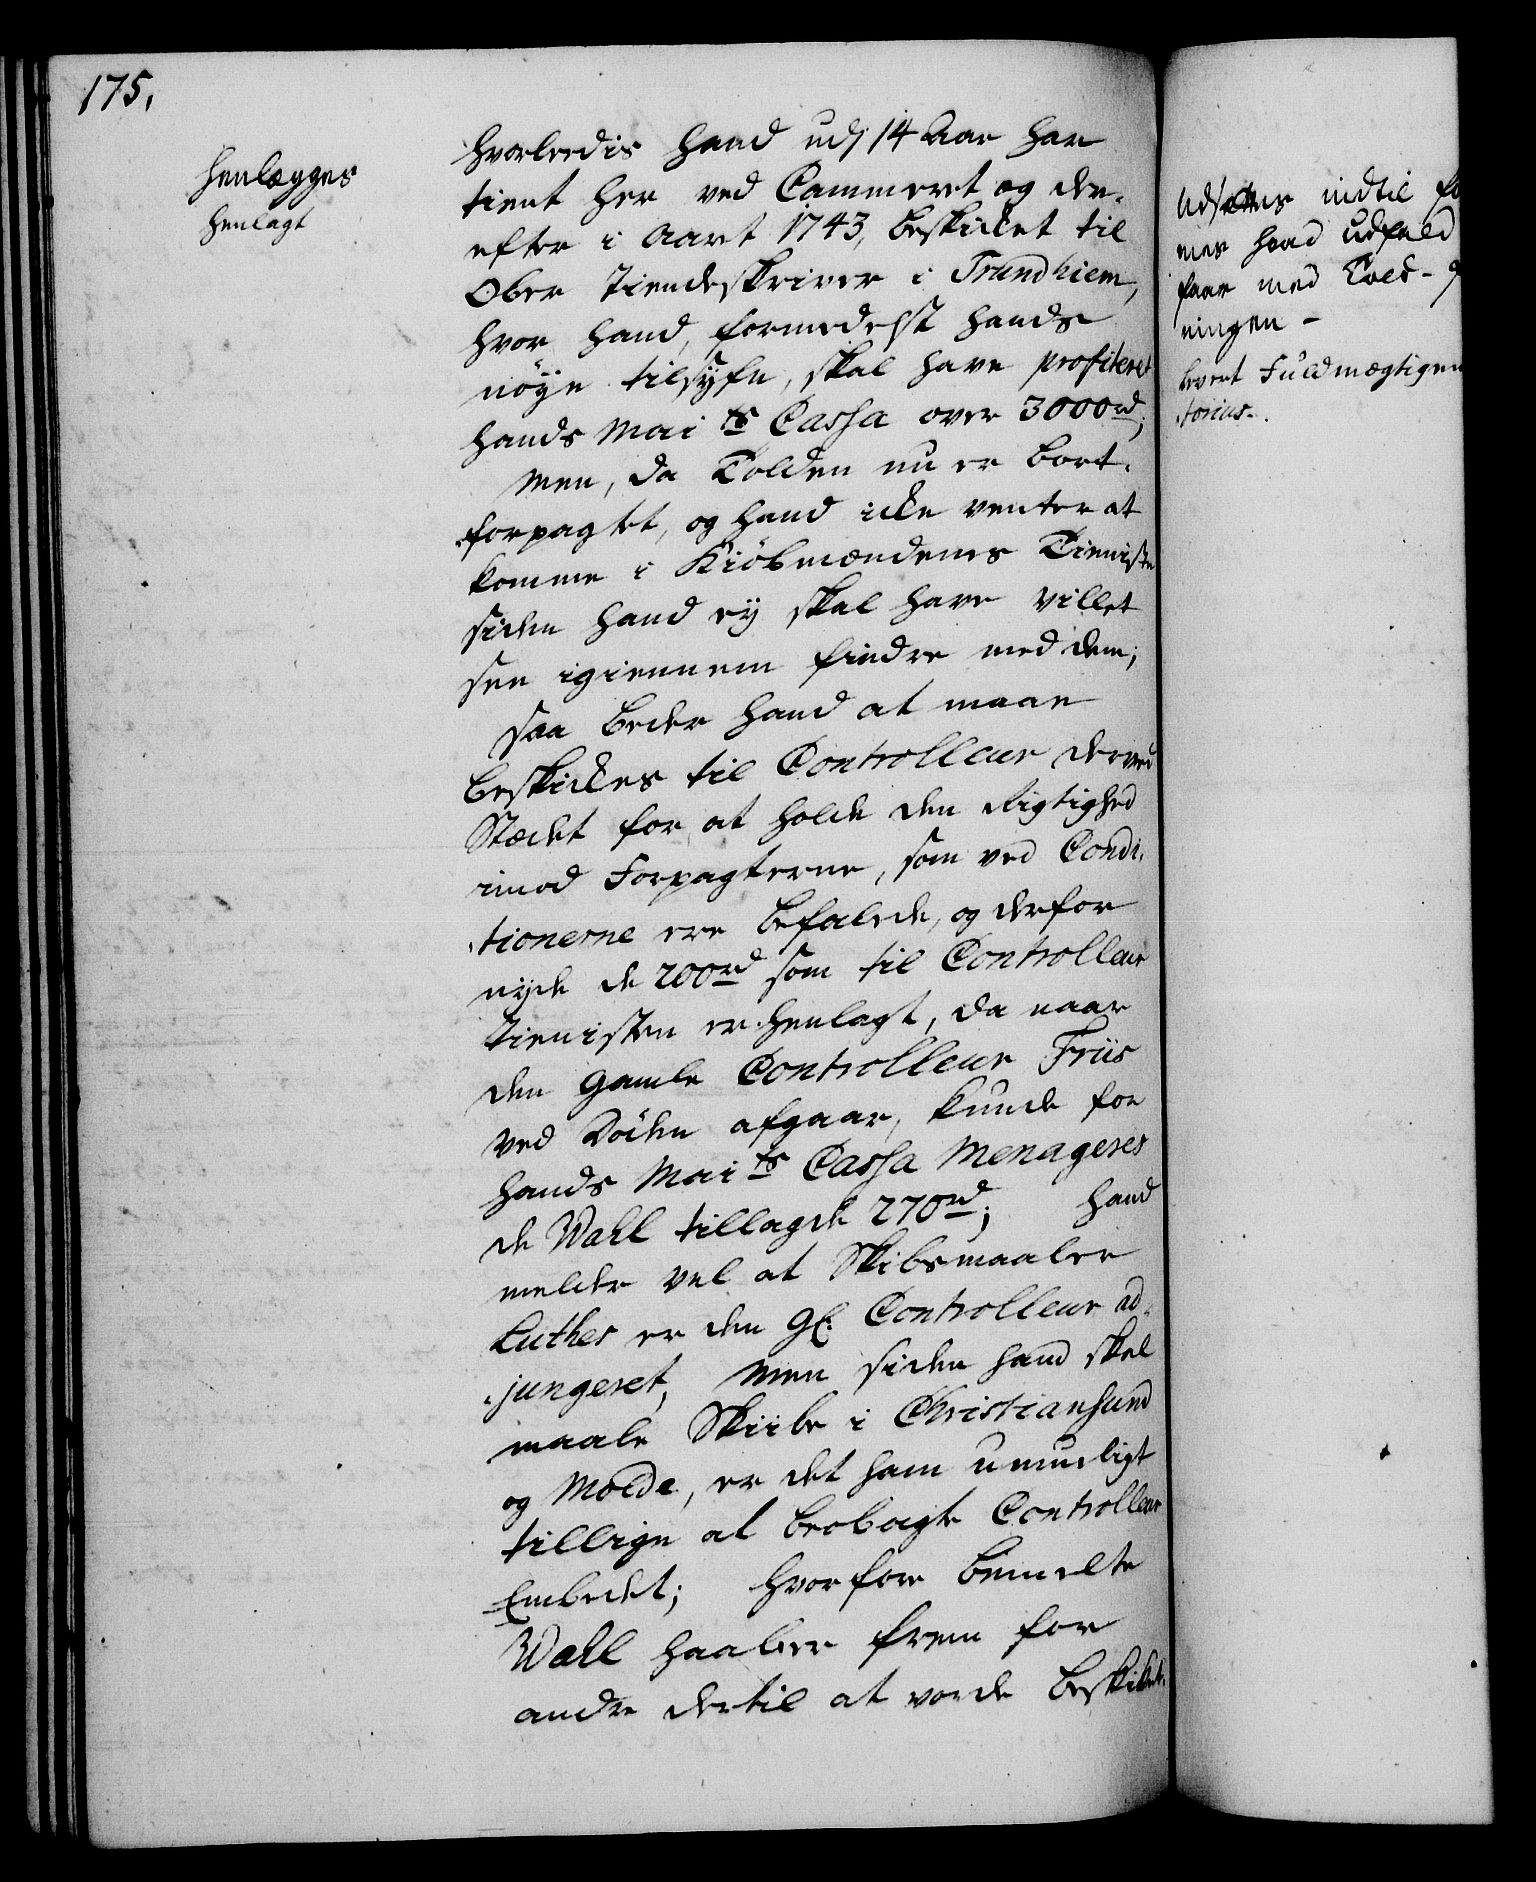 175.
henlægges
henlagt
hvorledis hand udj 14 Aar har
tient her ved Cammeret og der-
efter i Aaret 1743, beskicket til
Ober Tiendeskriver i Trundhiem,
hvor hand, formedelst hands
nöye tilsyfn, skal have profiteret
hands Maits Cassa over 3000rd,
Men, da Tolden nu er bort-
forpagtet, og hand icke venter at
komme i Kiöbmændenes Tieniste
siden hand ey skal have villet
see igiennem findre med dem;
saa beder hand at maae
beskickes til Controlleur derved
Stædet for at holde den Rigtighed
imod Forpagterne, som ved Condi-
tionerne ere befalede, og derfor
nyde de 200rd som til Controlleur
Tienisten er henlagt, da naar
den gamle Controlleur Friis
ved Döden afgaar, kunde for
hands Maits Cassa Menageres
de Wahl tillagde 270rd; hand
melder vel at Skibsmaaler
Luther er den gl. Controlleur ad-
jungeret, Men siden hand skal
maale Skiibe i Christiansund
og Molde, er det ham umueligt
tillige at beobagte Controlleur
Embedet; hvorfore bemelte
Wahl haaber frem for
andre dertil at vorde beskicket.
Udsættes indtil
mes hvad udfald
faar med Told-
ningen-
levert Fuldmægtigen